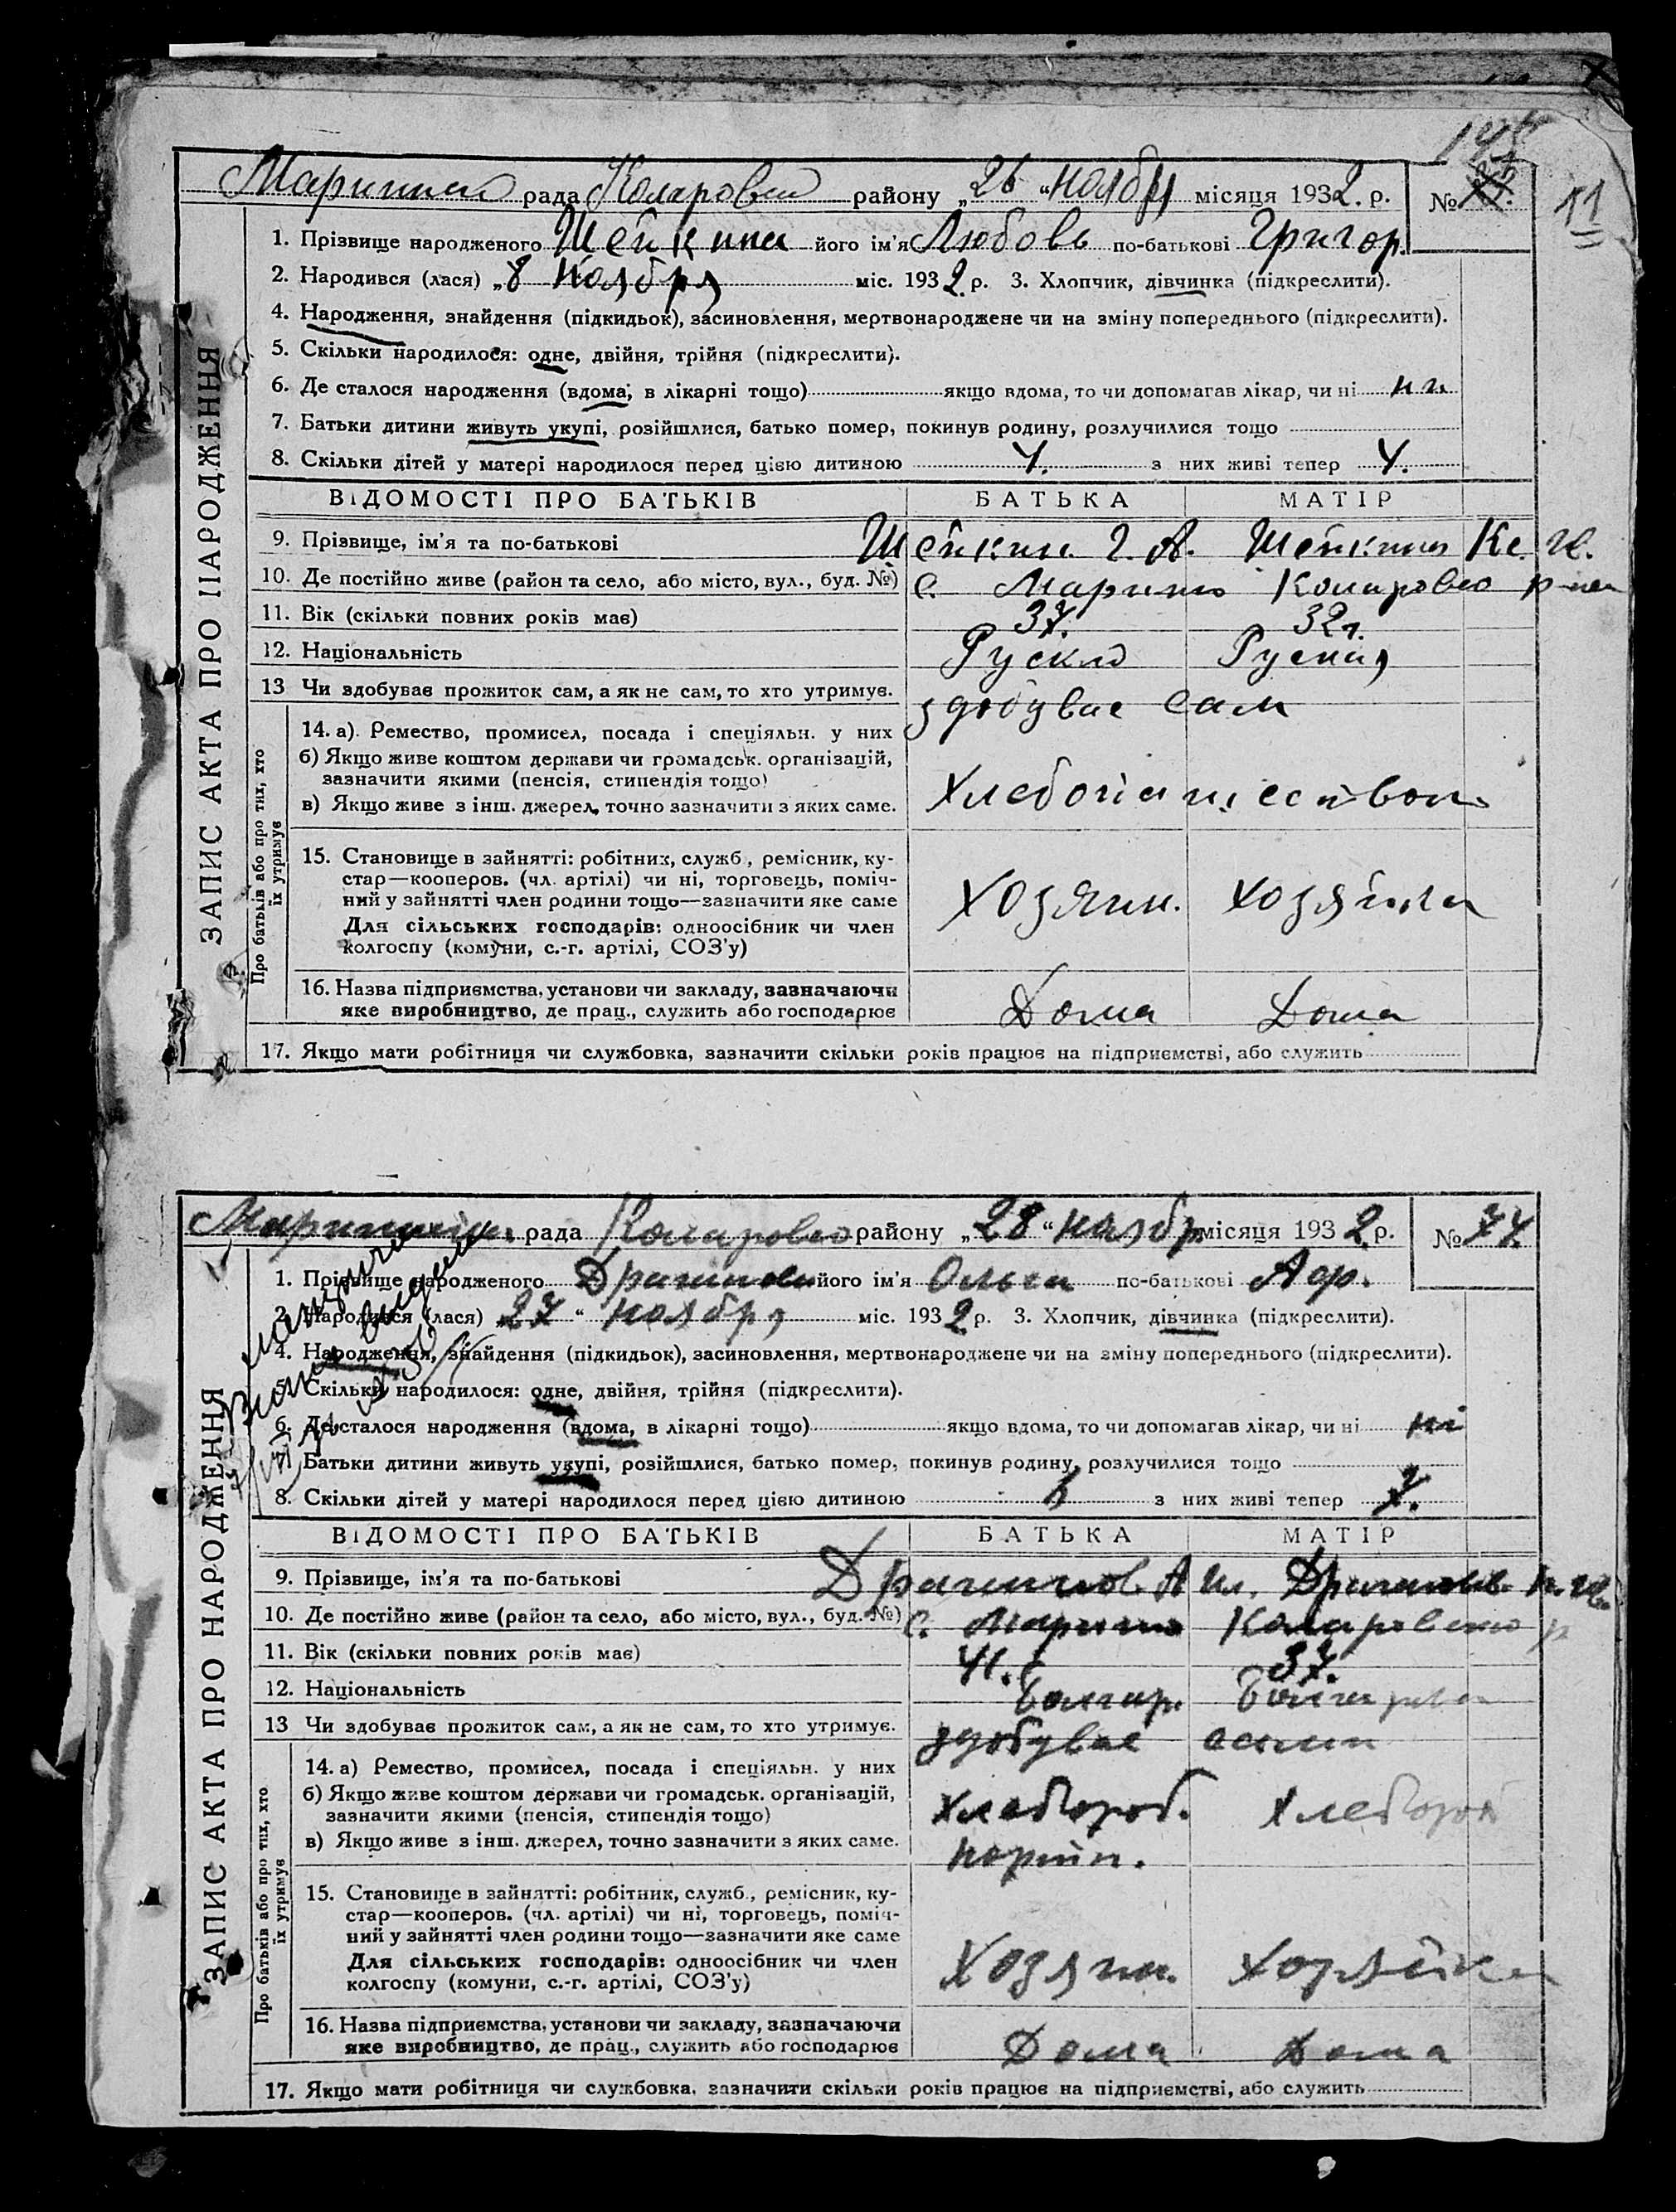 11
рада Коларовськ району „26 “ ноября місяця 1932. р. №
1. Прізвище народженого Шейкина його ім'я Любовь по-батькові Григор.
2. Народився (лася) „8 ноября міс. 1932 р. 3. Хлопчик, дівчинка (підкреслити).
4. Народження, знайдення (підкидьок), засиновлення, мертвонароджене чи на зміну попереднього (підкреслити).
5. Скільки народилося: одне, двійня, трійня (підкреслити).
6. Де сталося народження (вдома, в лікарні тощо) якщо вдома, то чи допомагав лікар, чи ні ні
7. Батьки дитини живуть укупі, розійшлися, батько помер, покинув родину, розлучилися тощо
8. Скільки дітей у матері народилося перед цією дитиною 4. з них живі тепер 4.
ЗАПИС АКТА ПРО НАРОДЖЕННЯ
ВІДОМОСТІ ПРО БАТЬКІВ БАТЬКА МАТІР
9. Прізвище, ім'я та по-батькові Шейкин. Г. А. Шейкина Кс. И.
10. Де постійно живе (район та село, або місто, вул., буд. №) с. Марино р-на
11. Вік (скільки повних років має) 37. 32 г.
12. Національність Руский Руския
13 Чи здобуває прожиток сам, а як не сам, то хто утримує. здобувае сам
Про батьків або про тих, хто їх утримує
14. а). Ремество, промисел, посада і спеціяльн. у них
б) Якщо живе коштом держави чи громадськ. організацій,
зазначити якими (пенсія, стипендія тощо)
в) Якщо живе з інш. джерел, точно зазначити з яких саме.
15. Становище в зайнятті: робітник, служб., ремісник, ку-
стар—кооперов. (чл. артілі) чи ні, торговець, поміч-
ний у зайнятті член родини тощо—зазначити яке саме Хозяин. хозяйка
Для сільських господарів: одноосібник чи член
колгоспу (комуни, с.-г. артілі, СОЗ'у)
16. Назва підприємства, установи чи закладу, зазначаючи
яке виробництво, де прац., служить або господарює Дома Дома
17. Якщо мати робітниця чи службовка, зазначити скільки років працює на підприємстві, або служить
рада району „28 “ ноябр місяця 1932 р. № 74.
1. Прізвище народженого його ім'я Ольга по-батькові Аф.
2. Народився (лася) 27 “ ноября міс. 1932 р. 3. Хлопчик, дівчинка (підкреслити).
4. Народження, знайдення (підкидьок), засиновлення, мертвонароджене чи на зміну попереднього (підкреслити).
5. Скільки народилося: одне, двійня, трійня (підкреслити).
6. Де сталося народження (вдома, в лікарні тощо) якщо вдома, то чи допомагав лікар, чи ні ні
7. Батьки дитини живуть укупі, розійшлися, батько помер, покинув родину, розлучилися тощо
8. Скільки дітей у матері народилося перед цією дитиною з них живі тепер
ЗАПИС АКТА ПРО НАРОДЖЕННЯ
ВІДОМОСТІ ПРО БАТЬКІВ БАТЬКА МАТІР
9. Прізвище, ім'я та по-батькові
10. Де постійно живе (район та село, або місто, вул., буд. №) с. Марино
11. Вік (скільки повних років має) 41. 37.
12. Національність Болгар. Болгарка
13 Чи здобуває прожиток сам, а як не сам, то хто утримує. здобувае
Про батьків або про тих, хто їх утримує
14. а) Ремество, промисел, посада і спеціяльн. у них
б) Якщо живе коштом держави чи громадськ. організацій, Хлебороб. Хлебороб
зазначити якими (пенсія, стипендія тощо)
в) Якщо живе з інш. джерел, точно зазначити з яких саме.
15. Становище в зайнятті: робітник, служб., ремісник, ку-
стар—кооперов. (чл. артілі) чи ні, торговець, поміч-
ний у зайнятті член родини тощо—зазначити яке саме
Для сільських господарів: одноосібник чи член Хозяин. хозяйка
колгоспу (комуни, с.-г. артілі, СОЗ'у)
16. Назва підприємства, установи чи закладу, зазначаючи
яке виробництво, де прац., служить або господарює Дома Дома
17. Якщо мати робітниця чи службовка, зазначити скільки років працює на підприємстві, або служить